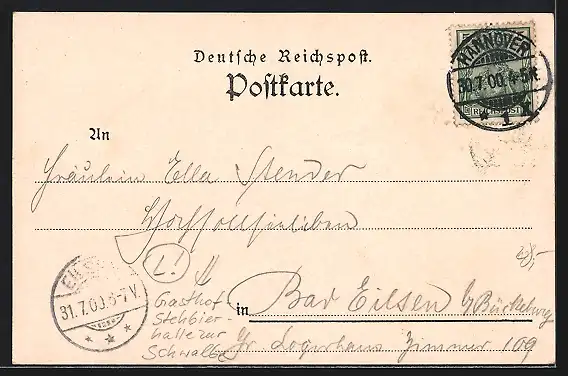 Deutsche Reichspost.
Postkarte.
HANNOVER
30.7.00.4-5N.
* 1
REICHSPOST
An
Fräulein Ella Stender
EILSEN
31.7.00.6-7V.
* * *
L!
Gasthof
Stehbier-
halle zur
Schwalbe
in Bad Eilsen b/Bückeburg
Gr Logirhaus Zimmer 109